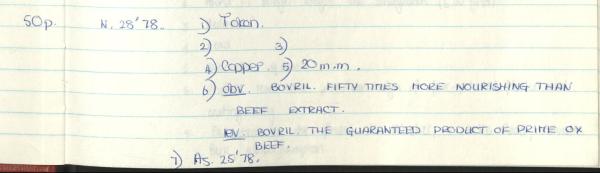 50p. N. 25'78. 1) Token.
2) 3)
4) Copper. 5) 20m.m.
6) obv. BOVRIL. FIFTY TIMES MORE NOURISHING THAN
BEEF EXTRACT.
rev. BOVRIL. THE GUARANTEED PRODUCT OF PRIME OX
BEEF.
7) As. 25'78.